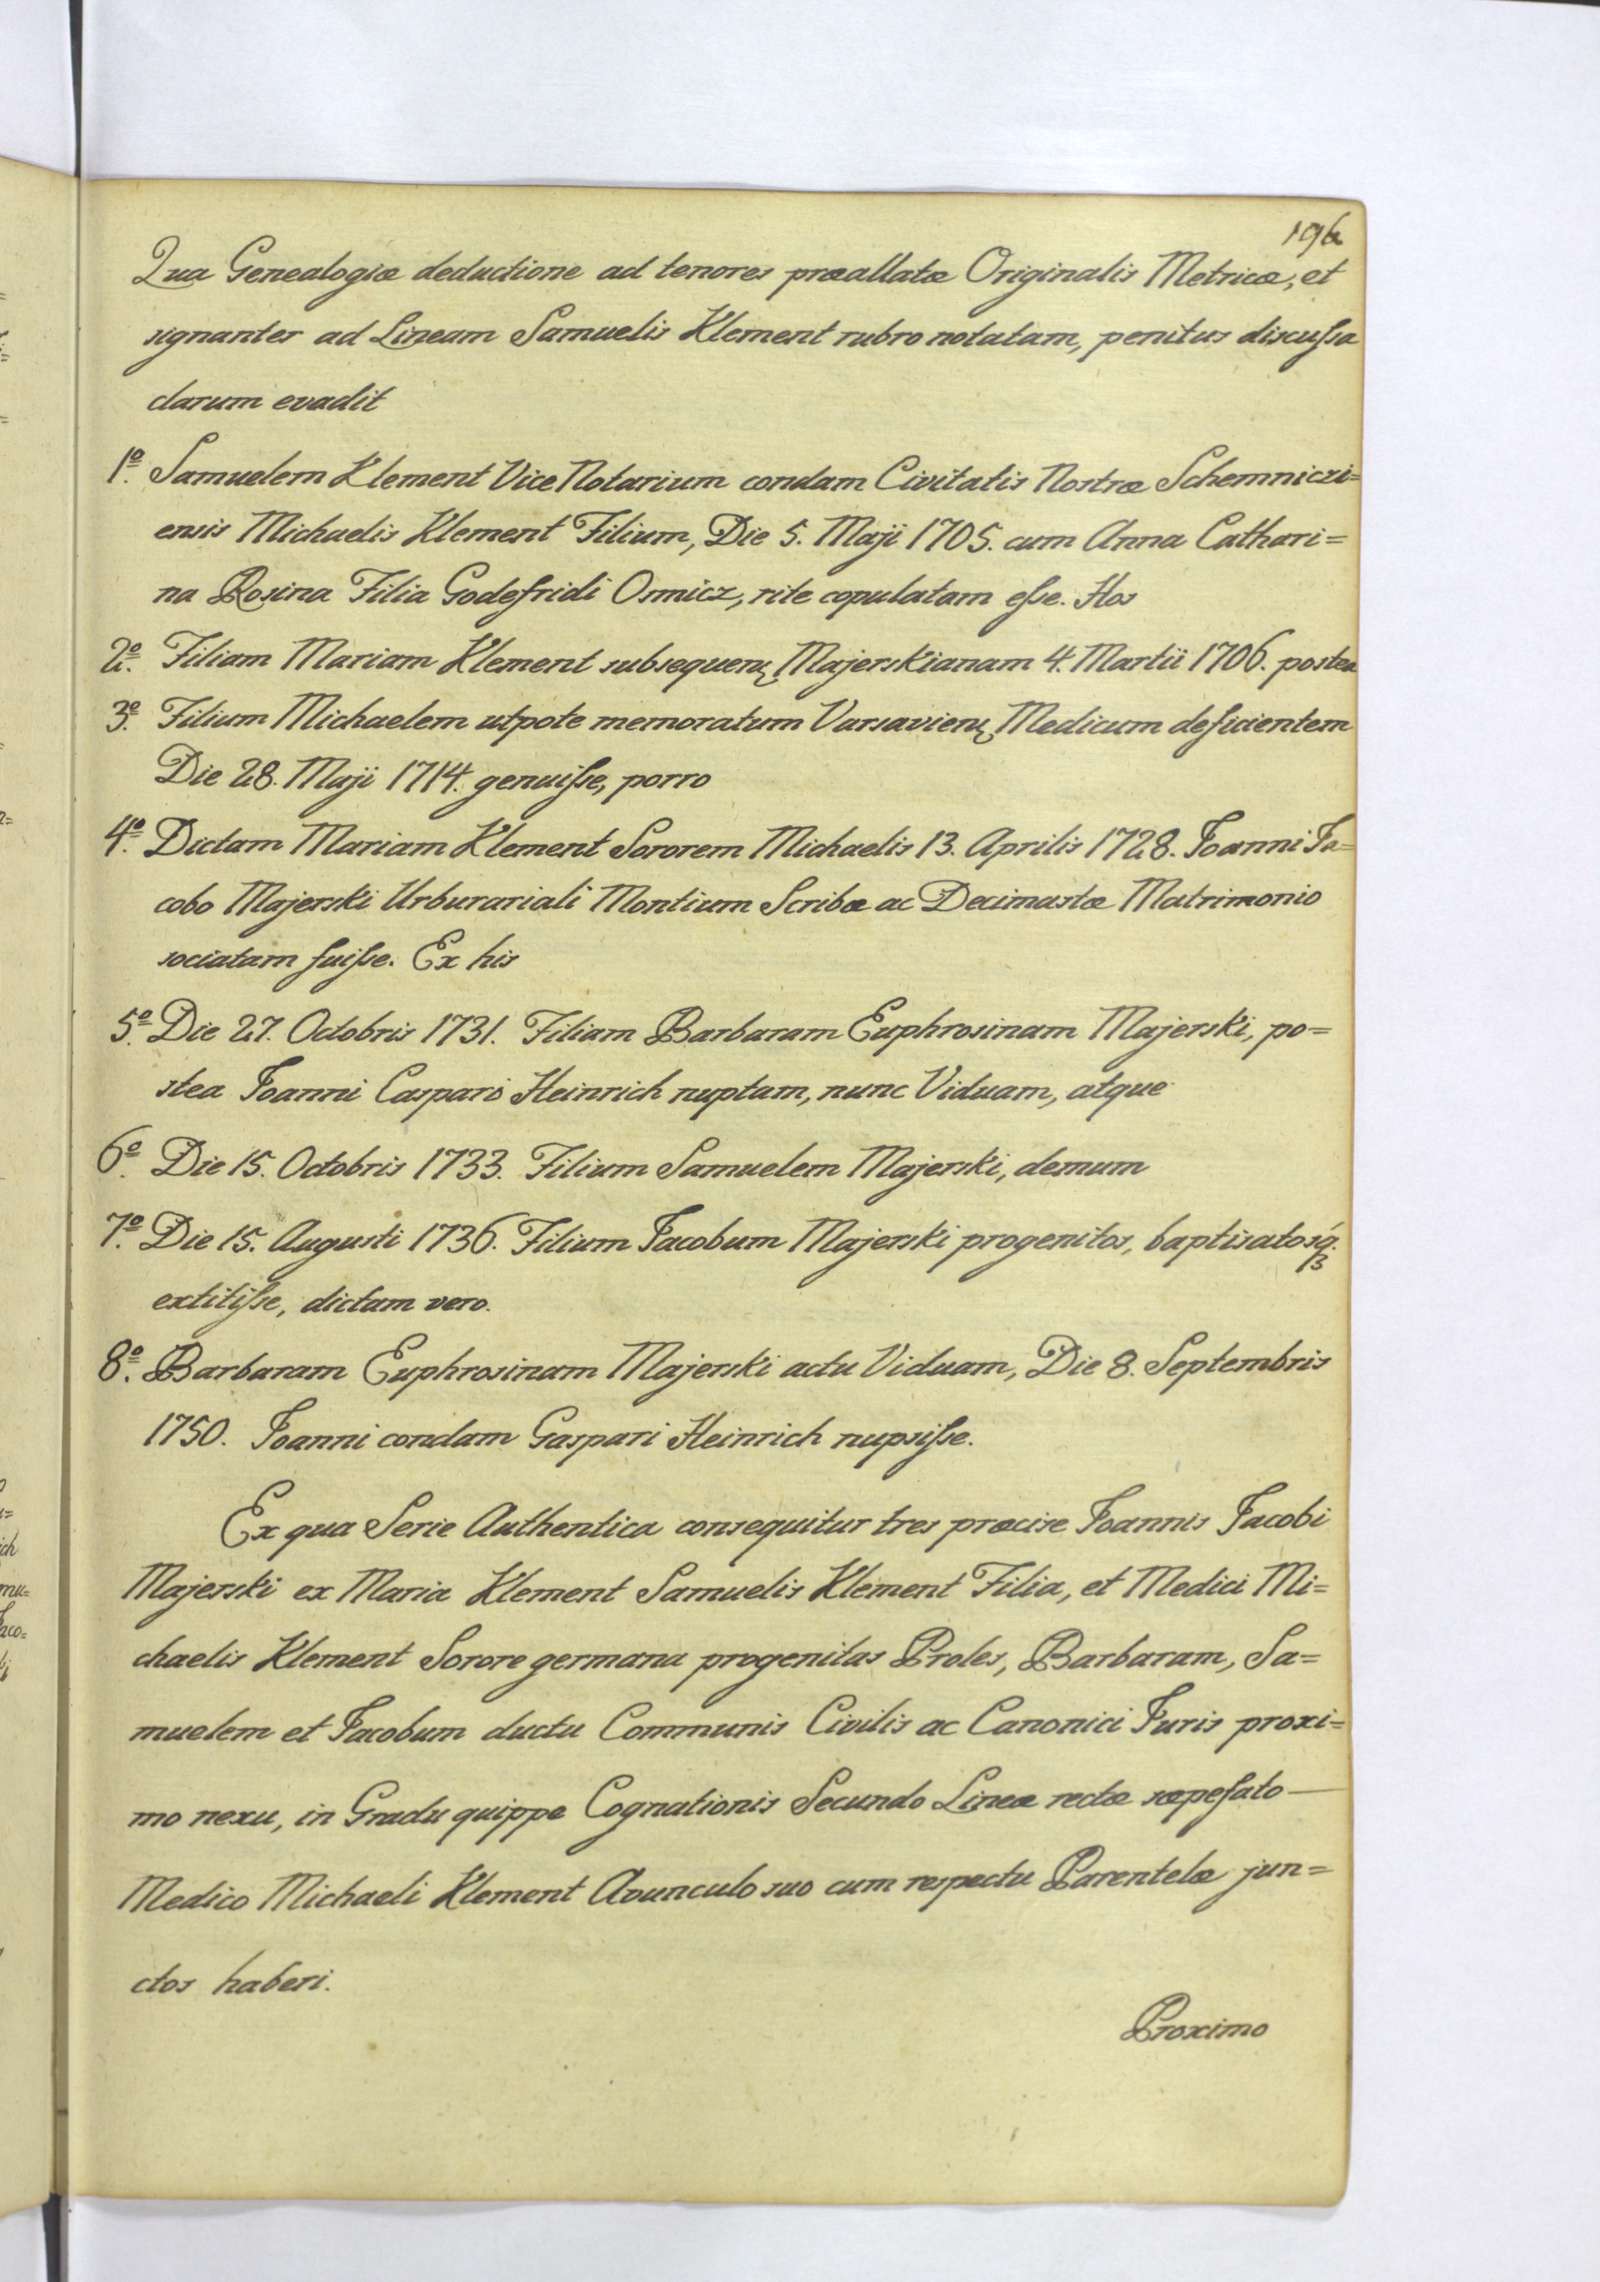 196
Qua Genealogiæ deductione ad tenores præallatæ Originalis Metricæ, et
signanter ad Lineam Samuelis Klement rubro notatam, penitus discussa
clarum evadit
1º. Samuelem Klement Vice Notarium condam Civitatis Nostræ Schemniczi=
ensis Michaelis Klement Filium, Die 5. Maji 1705. cum Anna Cathari=
na Rosina Filia Godefridi Osmicz, rite copulatam esse. Hos
2º. Filiam Mariam Klement subsequenꝫ Majerskianam 4. Martii 1706. postea
3º. Filium Michaelem utpote memoratum Varsavienꝫ Medicum deficientem
Die 28. Maji 1714. genuisse, porro
4º. Dictam Mariam Klement Sororem Michaelis 13. Aprilis 1728. Joanni Ja=
cobo Majerski Urburariali Montium Scribæ ac Decimastæ Matrimonio
sociatam fuisse. Ex his
5º. Die 27. Octobris 1731. Filiam Barbaram Euphrosinam Majerski, po=
stea Joanni Caspari Heinrich nuptam, nunc Viduam, atque
6º. Die 15. Octobris 1733. Filium Samuelem Majerski, demum
7º. Die 15. Augusti 1736. Filium Jacobum Majerski progenitos, baptisatosqꝫ
extitisse, dictam vero.
8º. Barbaram Euphrosinam Majerski actu Viduam, Die 8. Septembris
1750. Joanni condam Gaspari Heinrich nupsisse.
Ex qua Serie Authentica consequitur tres præcise Joannis Jacobi
Majerski ex Maria Klement Samuelis Klement Filia, et Medici Mi=
chaelis Klement Sorore germana progenitas Proles, Barbaram, Sa=
muelem et Jacobum ductu Communis Civilis ac Canonici Juris proxi=
mo nexu, in Gradu quippe Cognationis Secundo Lineæ rectæ sæpefato
Medico Michaeli Klement Avunculo suo cum respectu Parentelæ jun=
ctos haberi.
Proximo